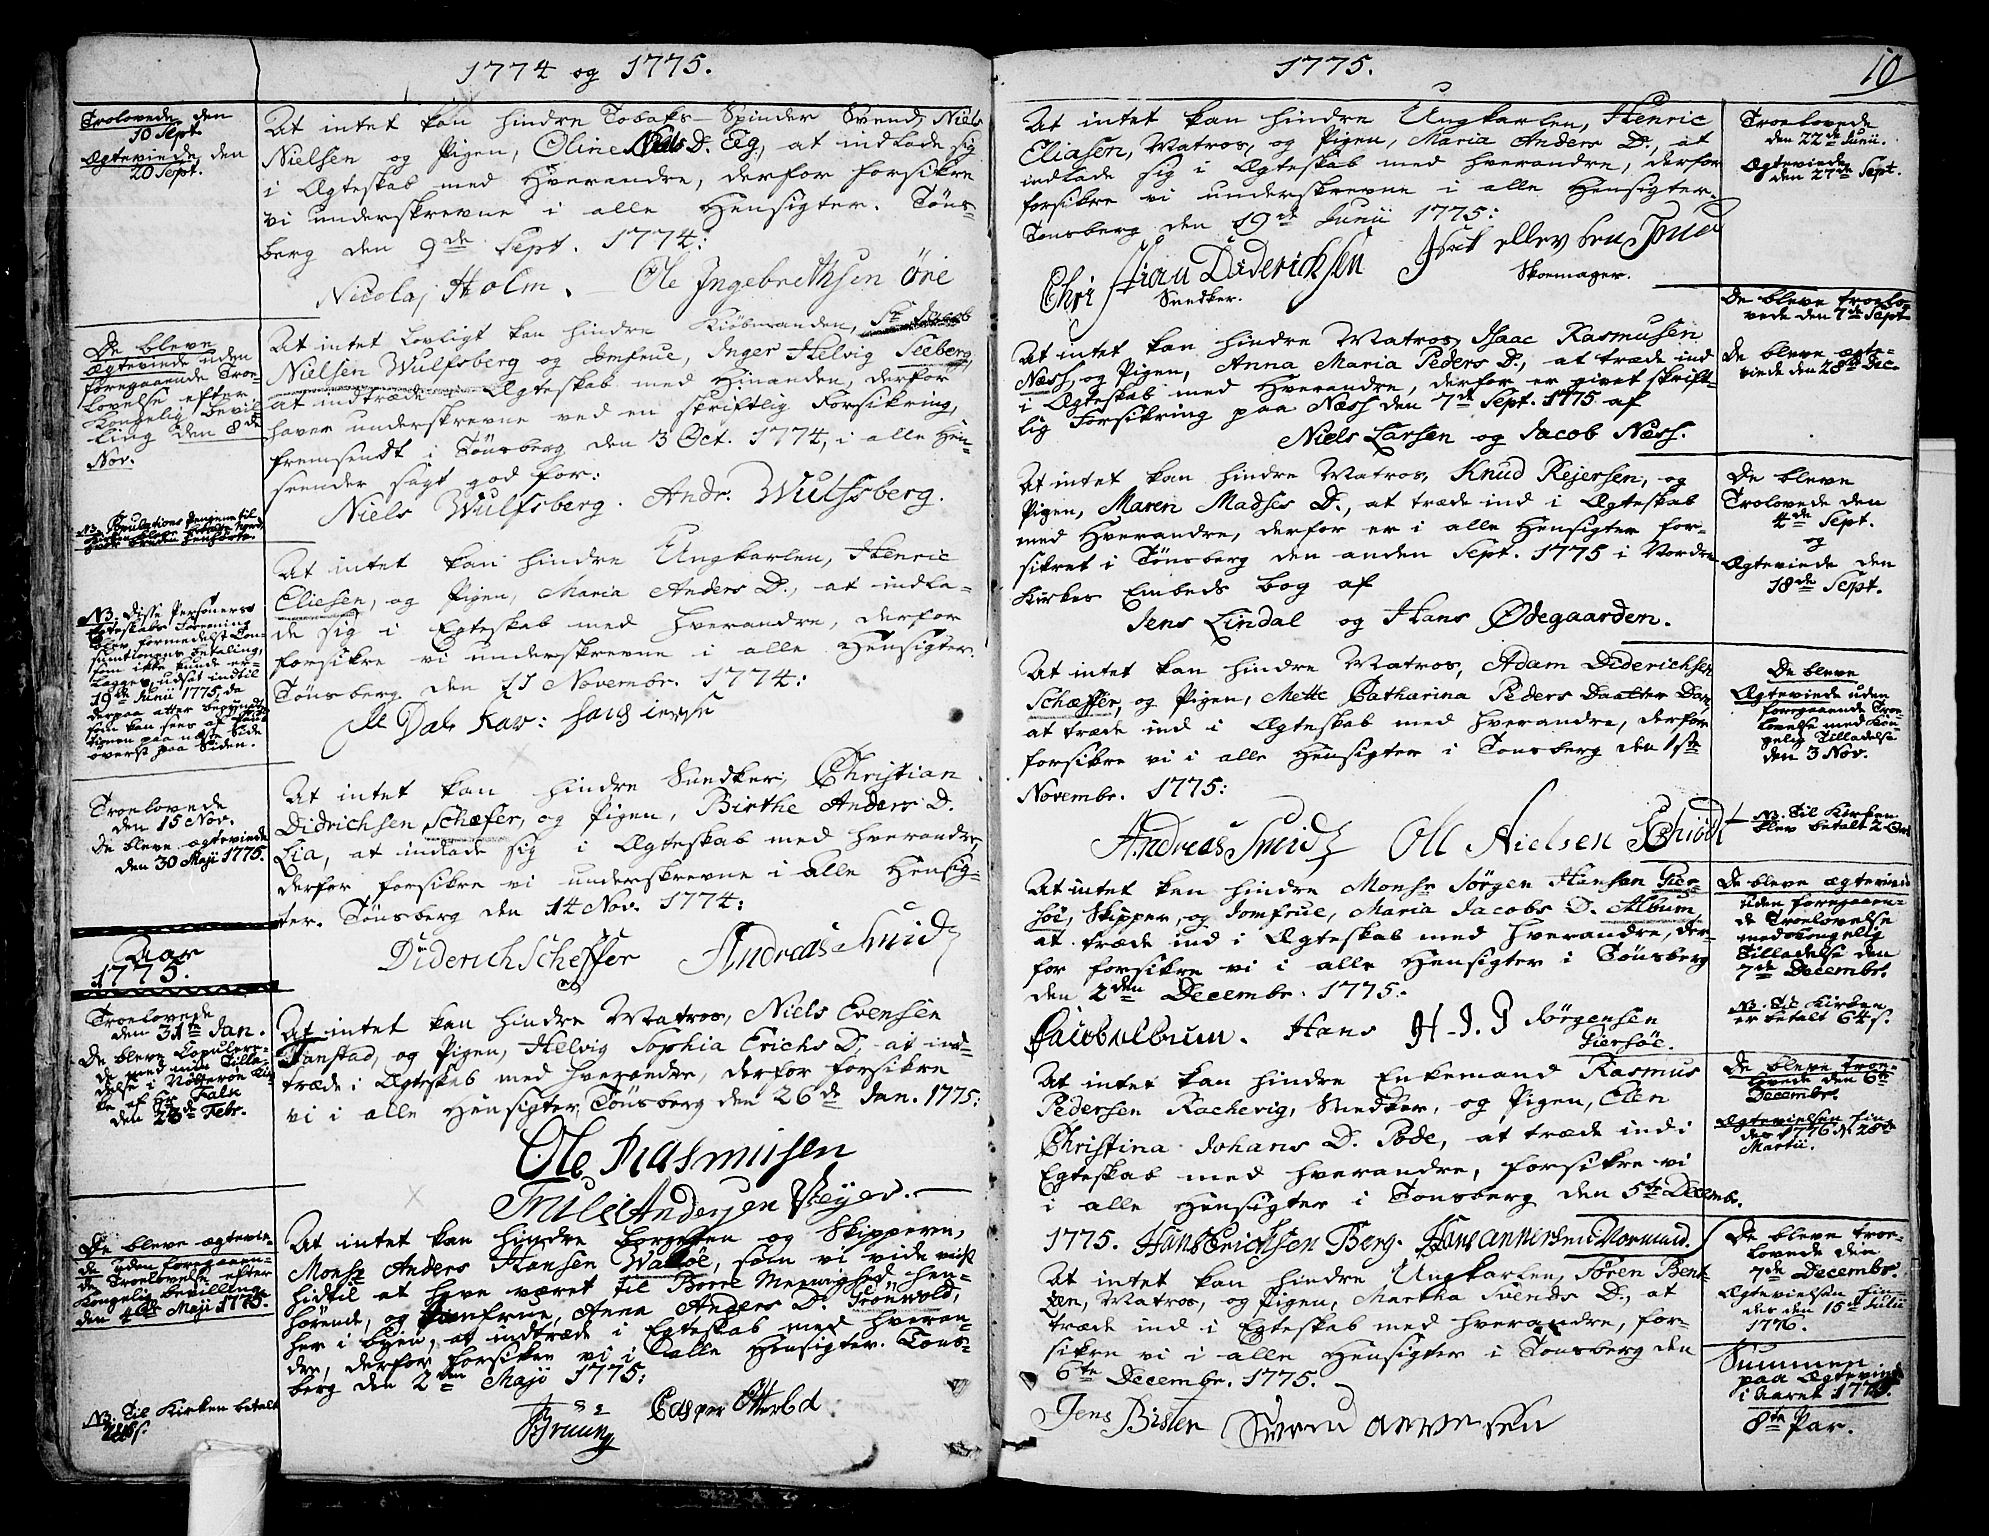 1774 og 1775.
Trolovede den
10 Sept.
Ægteviede den
20 Sept.
At intet kan hindre Tobaks-Spinder Svend, Niels
Nielsen og Pigen, Oline Niels D. Eeg, at indlade sig
i Ægteskab med Hverandre, derfor forsikre
vi underskrevne i alle Hensigter. Töns-
berg den 9de Sept. 1774:
Nicolaj Holm. Ole Ingebrethsen Örie
De bleve
Ægteviede uden
foregaaende Troe-
lovelse efter
Kongelig Bevil-
ling den 8de
Nov.
At intet Lovligt kan hindre Kiöbmanden, Sr. Jacob
Nielsen Wulfsberg og Jomfrue, Inger Helvig Seeberg,
at indtræde i Ægteskab med Hinanden, derfor
haver underskrevne ved en skriftlig Forsikring,
fremsendt i Tönsberg den 3 Oct. 1774, i alle Hen-
seender sagt god for:
Niels Wulfsberg. Andr. Wulfsberg.
NB. Copulations Pengene til
Kirken bleve betalte
At intet kan hindre Ungkarlen, Henric
Eliesen, og Pigen, Maria Anders D., at indla-
de sig i Egteskab med Hverandre, derfor
forsikre vi underskrevne i alle Hensigter.
Tönsberg den 11 Novembr. 1774:
NB. Disse Personers
Egteskabs Forening
blev formedelst Con-
sumtionens betaling,
som ikke kunde er-
lægges, udsat indtil
19de Junii 1775, da
derpaa atter begyndt
som kan sees af
paa næste Side
överst paa Siden.
Troelovede
den 15 Nov.
De bleve ægteviede
den 30 Maji 1775.
At intet kan hindre Snedker, Christian
Didrichsen Schæfer, og Pigen, Birthe Anders D.
Lia, at indlade sig i Ægteskab med hverandre,
derfor forsikre vi underskrevne i alle Hensig-
ter. Tönsberg den 14 Nov. 1774:
Diderich Scheffer Andreas Smidt
Aar
1775.
Troelovede
den 31te Jan.
De bleve Copulere-
de med min Tilla-
delse i Nötteröe Kir-
ke af Hr. Falk
den 28de Febr.
At intet kan hindre Matros, Niels Evensen
Fanstad, og Pigen, Helvig Sophia Erichs D, at ind-
træde i Ægteskab med hverandre, derfor forsikre
vi i alle Hensigter, Tönsberg den 26de Jan. 1775:
Ole Rasmusen
Truls Andersen Reyer.
De bleve ægtevie-
de uden foregaaen-
de Troelovelse efter
Kongelig bevilling
den 4de Maji 1775.
At intet kan hindre Borgeren og Skipperen,
Monsr Anders Hansen Wallöe, som vi vide vist
hidtil at have været til Borre Menighed hen-
hörende, og Jomfrue, Anna Anders D. Grönvold,
her i Byen, at indtræde i Egteskab med hveran-
dre, derfor forsikre vi i alle Hensigter. Töns-
berg den 2den Maji 1775:
NB. Til Kirken betalt
Bruun Casper Otterbech
1775.
10
At intet kan hindre Ungkarlen, Henric
Eliasen, Matros, og Pigen, Maria Anders D., at
indlade sig i Ægteskab med Hverandre, derfor
forsikre vi underskrevne i alle Hensigter.
Tönsberg den 19de Junii 1775:
Christian Diderichsen
Snedker. Skoemager.
Troelovede
den 22de Junii.
Ægteviede
den 27de Sept.
At intet kan hindre Matros, Isaac Rasmusen
Næss, og Pigen, Anna Maria Peders D., at træde ind
i Ægteskab med Hverandre, derfor er givet skrift-
lig Forsikring paa Næss den 7de Sept. 1775 af
Niels Larsen og Jacob Næss.
De bleve troelo-
vede den 7de Sept
De bleve ægte-
viede den 28de Dec.
At intet kan hindre Matros, Knud Rejersen, og
Pigen, Maren Madses D., at træde ind i Ægteskab
med Hverandre, derfor er i alle Hensigter for-
sikret i Tönsberg den anden Sept. 1775 i Norden
Kirkes Embeds Bog af
Jens Lindal og Hans Ødegaarden.
De bleve
Trolovede den
4de Sept.
og
Ægteviede den
18de Sept.
At intet kan hindre Matros, Adam Diderichsen
Schæffer, og Pigen, Mette Catharina Peders Daatter Dan,
at træde ind i Ægteskab med hverandre, derfor
forsikre vi i alle Hensigter i Tönsberg den 1ste
Novembr. 1775:
Andreas Smidt Oll Nielsen Schiödt
De bleve
Ægteviede uden
foregaaende Troe-
lovelse med Kon-
gelig Tilladelse
den 3 Nov.
NB. Til Kirken
blev betalt 2 Ort
At intet kan hindre Monsr Jörgen Hansen Gier-
söe, Skipper, og Jomfrue, Maria Jacobs D. Album,
at træde ind i Ægteskab med hverandre, der-
for forsikre vi i alle Hensigter i Tönsberg
den 2den Decembr. 1775:
Jacob Album. Hans H.I.P Jörgensen
Giersöe.
De bleve ægteviede
uden foregaaen-
de Troelovelse
med Kongelig
Tilladelse den
7de Decembr.
NB. Til Kirken
er betalt 64 s.
At intet kan hindre Enkemand Rasmus
Pedersen Rachevig, Snedker, og Pigen, Elen
Christina Johans D. Pode, at træde ind i
Egteskab med hverandre, forsikre vi
i alle Hensigter i Tönsberg den 5te Decembr.
1775. Hans Erichsen Berg. Hans Annersen Normand.
De bleve troe-
lovede den 6te
Decembr.
Ægtevielsen hin-
des 1776 d. 28de
Martii.
At intet kan hindre Ungkarlen, Sören Bent-
zen, Matros, og Pigen, Martha Svends D., at
træde ind i Egteskab med hverandre, for-
sikre vi i alle Hensigter i Tönsberg den
6te Decembr. 1775.
Jens Bisler Svend
De bleve troe-
lovede den
7de Decembr.
Ægtevielsen hin-
des den 15de Julii
1776.
Summen
paa Ægteviede
i Aaret 1775.
8te Par.